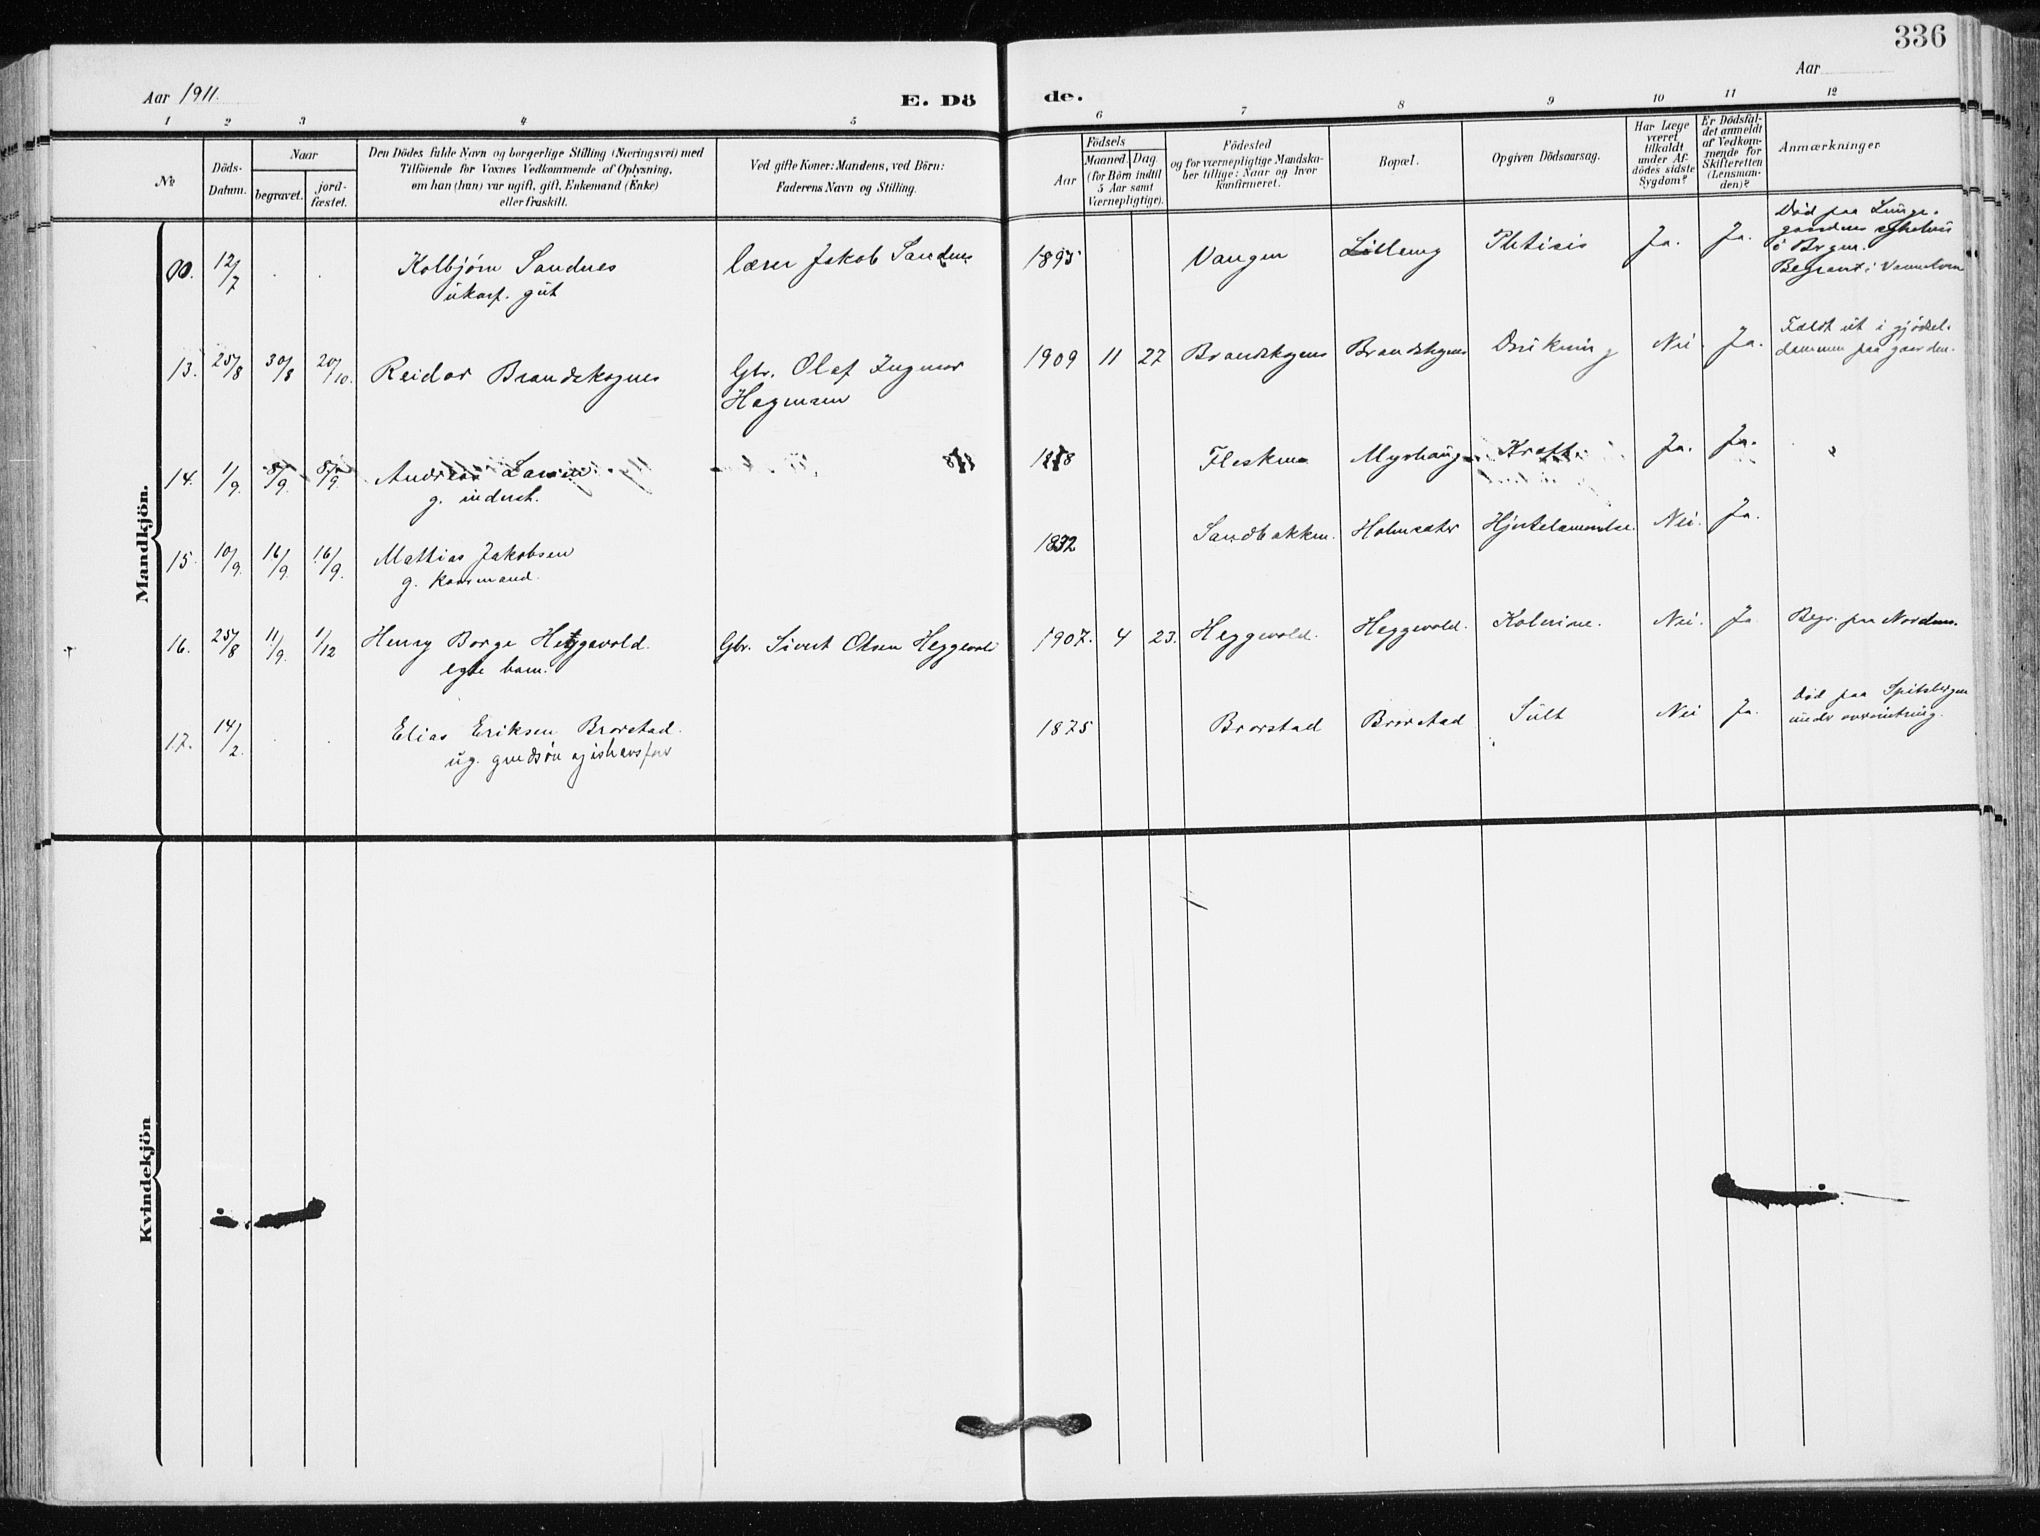 336
Aar 1911.
E. Dö
de.
Aar
1 2 3 4 5 6 7 8 9 10 11 12
No
Döds-
Datum.
Naar
begravet.
jord-
fæstet.
Den Dödes fulde Navn og borgerlige Stilling (Næringsvei) med
Tilföiende for Voxnes Vedkommende af Oplysning,
om han (hun) var ugift, gift, Enkemand (Enke)
eller fraskilt.
Ved gifte Koner: Mandens, ved Börn:
Faderens Navn og Stilling.
Födsels
Aar
Maaned. Dag.
(for Börn indtil
5 Aar samt
Værnepligtige).
Födested
og for værnepligtige Mandska-
ber tillige: Naar og hvor
konfirmeret.
Bopæl.
Opgiven Dödsaarsag.
Har Læge
været
tilkaldt
under Af-
dödes sidste
Sygdom?
Er Dödsfal-
det anmeldt
af Vedkom-
mende for
Skifteretten
(Lensman-
den)?
Anmærkninger
Mandkjön.
00. 12/7 Kolbjørn Sandnes lærer Jakob Sandnes 1895 Vangen Ja. Ja. Død paa Lunge-
ukonf. gut
gaardens sykehus
i Bergen.
13. 25/8 30/8 20/10. Reidar Brandskognes Gbr. Olaf Ingmar 1909 11 27 Brandskognes Brandskognes Drukning Nei Ja. Faldt ut i gjødsel-
Hagmann
dammen paa gaarden.
14. 1/9. 8/9. 8/9 Andreas Larsen Fleskmo Myrhaug Kræft Ja. Ja.
g. inderst.
15. 10/9. 16/9. 16/9. Mattias Jakobsen 1832 Sandbakken Holmsæter Hjertelammelse. Nei. Ja.
g. kaarmand.
16. 25/8 11/9. 1/12 Henry Borge Heggevold. Gbr. Sivert Olsen Heggevold 1907. 4 23. Heggevold. Heggevold. Kolerine. Nei. Ja Begr. paa Nordmo.
egte barn.
17. 14/2. Elias Eriksen Brorstad. 1875 Brorstad Brorstad Sult Nei Ja. Død paa Spitsbergen
ug. grdsøn og ishavsfarer
under overvintring.
Kvindekjön